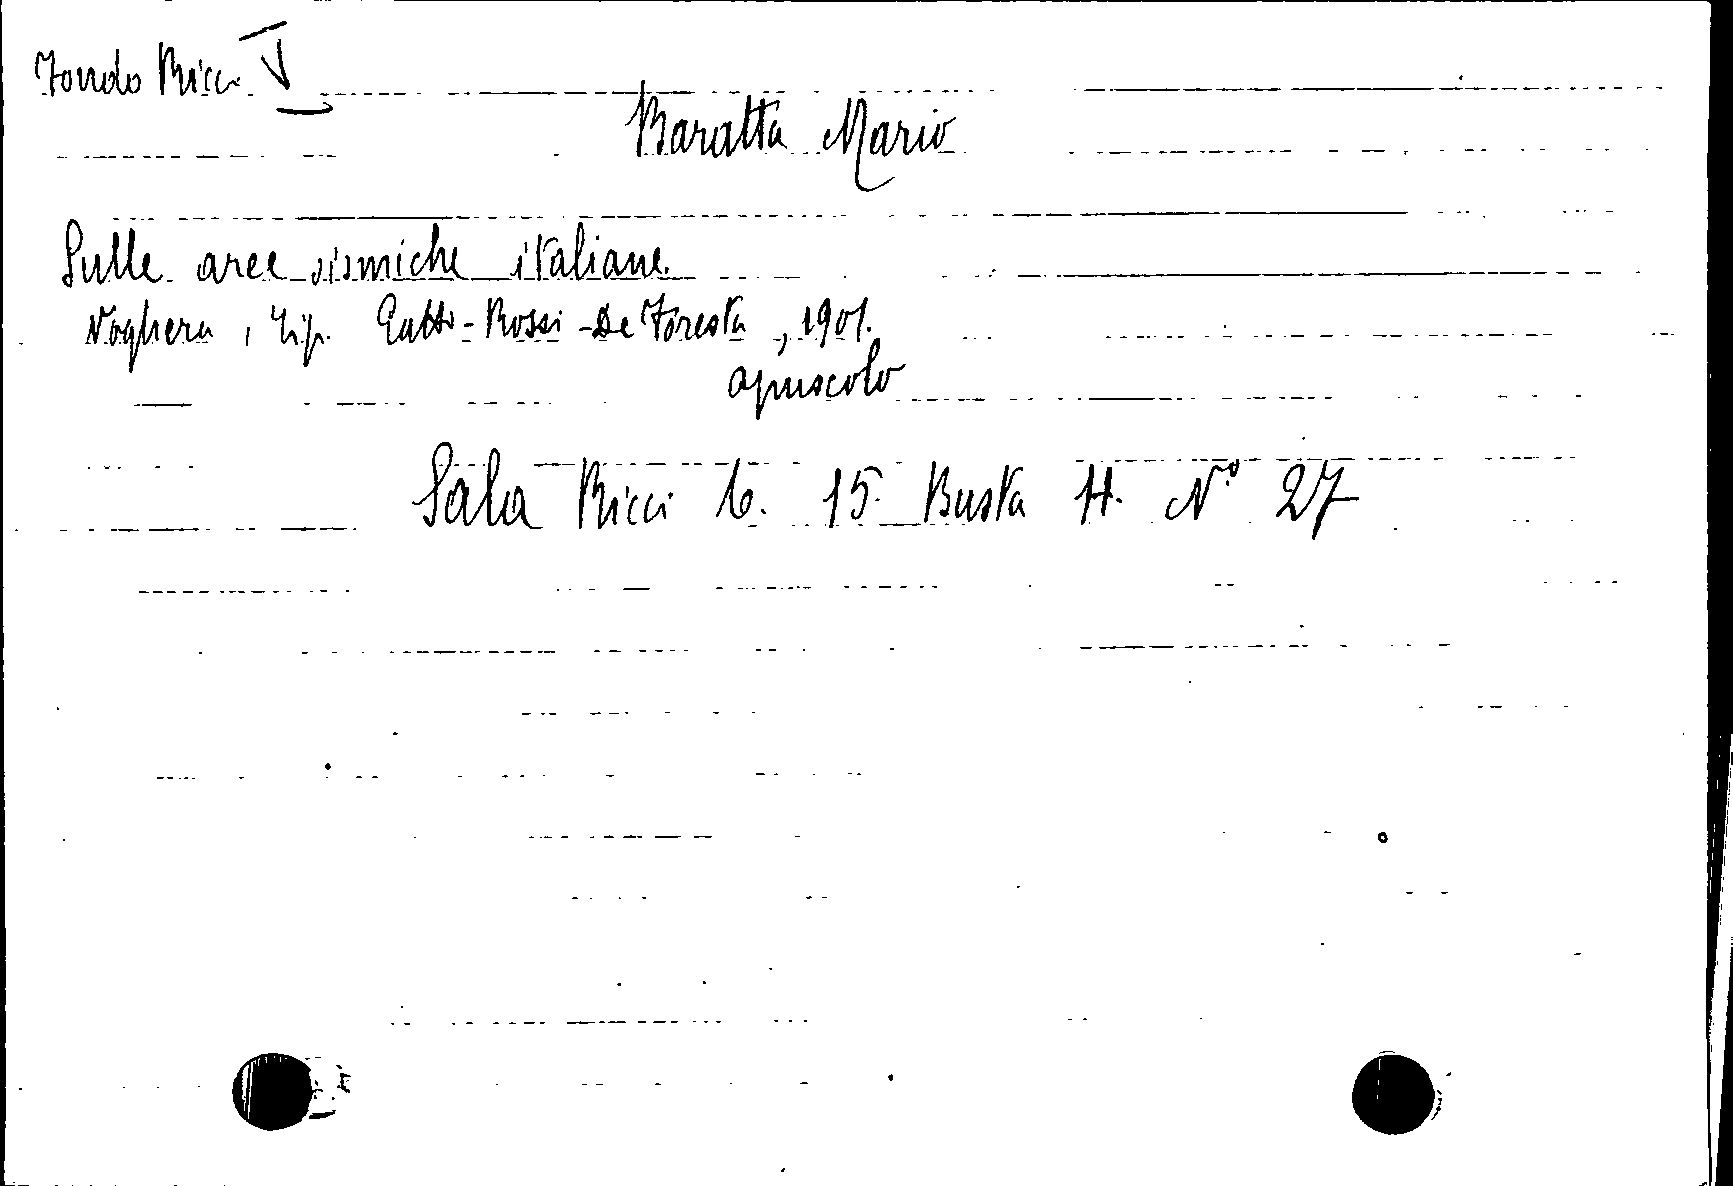 Fondo Ricci V
Baratta Mario
Sulle aree sismiche italiane.
Voghera, Tip. Gatti-Rossi-De Foresta, 1901.
opuscolo
Sala Ricci 6. 15. Busta H. N.º 27